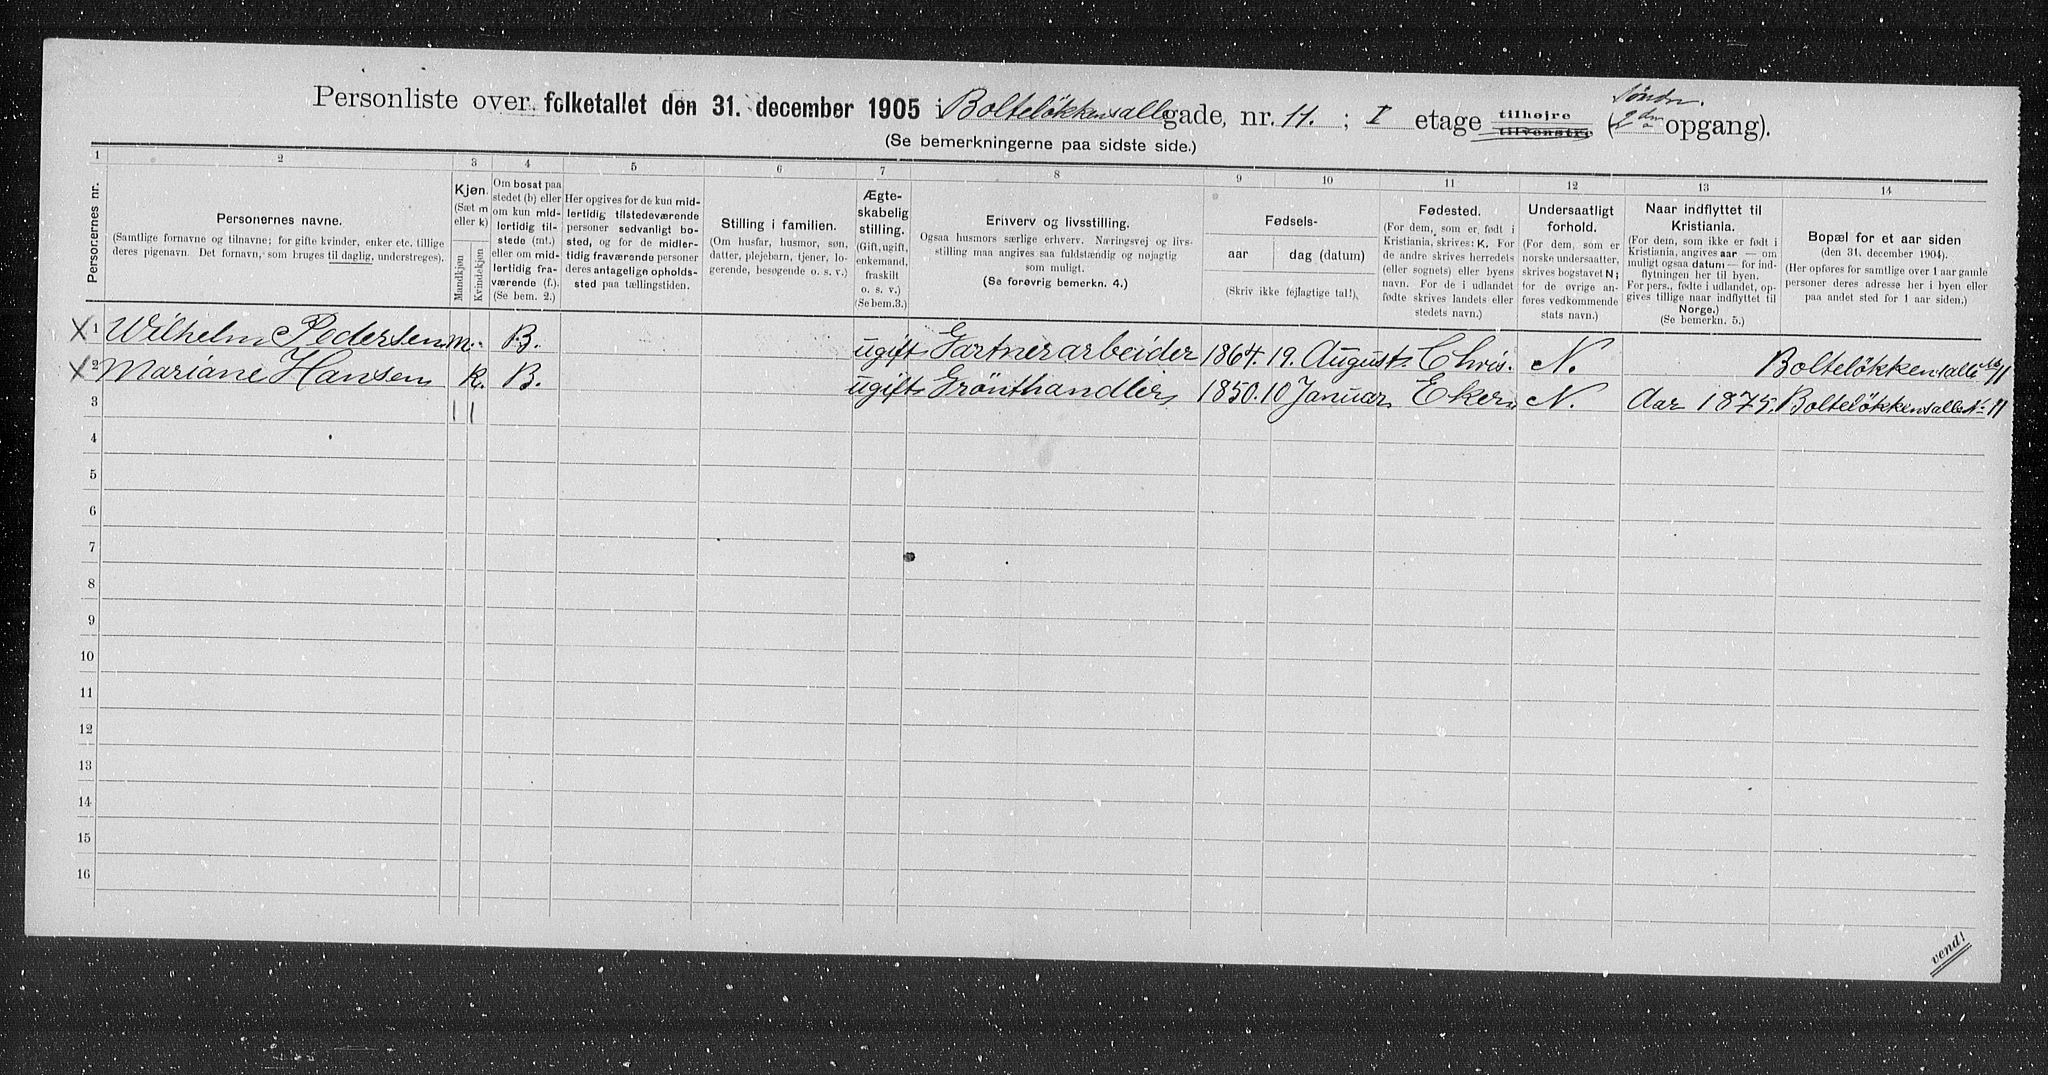 Personliste over folketallet den 31. december 1905 i Bolteløkkensallegade, nr. 11. ; I etage tilhøjre tilvenstre (Søndre. 2den opgang).
(Se bemerkningerne paa sidste side.)
1 2 3 4 5 6 7 8 9 10 11 12 13 14
Personernes nr.
Personernes navne.
(Samtlige fornavne og tilnavne; for gifte kvinder, enker etc. tillige
deres pigenavn. Det fornavn, som bruges til daglig, understreges).
Kjøn.
(Sæt m
eller k)
Mandkjøn
Kvindekjøn
Om bosat paa
stedet (b) eller
om kun mid-
lertidig til-
stede (mt.)
eller om mid-
lertidig fra-
værende (f.).
(Se bem. 2.)
Her opgives for de kun mid-
lertidig tilstedeværende
personer sedvanligt bo-
sted, og for de midler-
tidig fraværende personer
deres antagelige opholds-
sted paa tællingstiden.
Stilling i familien.
(Om husfar, husmor, søn,
datter, plejebarn, tjener, lo-
gerende, besøgende o. s. v.)
Ægte-
skabelig
stilling.
(Gift, ugift,
enkemand,
fraskilt
o. s. v.)
(Se bem. 3.)
Erhverv og livsstilling.
Ogsaa husmors særlige erhverv. Næringsvej og livs-
stilling maa angives saa fuldstændig og nøjagtig
som muligt.
(Se forøvrig bemerkn. 4.)
Fødsels-
aar dag (datum)
(Skriv ikke fejlagtige tal!).
Fødested.
(For dem, som er født i
Kristiania, skrives: K. For
de andre skrives herredets
(eller sognets) eller byens
navn. For de i udlandet
fødte skrives landets eller
stedets navn.)
Undersaatligt
forhold.
(For dem, som er
norske undersaatter,
skrives bogstavet N;
for de øvrige an-
føres vedkommende
stats navn.)
Naar indflyttet til
Kristiania.
(For dem, som ikke er født i
Kristiania, angives aar — om
muligt ogsaa datum — for ind-
flytningen her til byen.
For pers., fødte i udlandet, op-
gives tillige naar indflyttet til
Norge.)
(Se bemerkn. 5.)
Bopæl for et aar siden
(den 31. december 1904).
(Her opføres for samtlige over 1 aar gamle
personer deres adresse her i byen eller
paa andet sted for 1 aar siden.)
X 1 Wilhelm Pedersen m. B. ugift Gartnerarbeider 1864. 19. August. Chris. N. Bolteløkkensalle No 11
X 2 Mariane Hansen k. B. ugift Grønthandler 1850. 10 Januar Eker N. Aar 1875. Bolteløkkensalle No 11
3 1 1
4
5
6
7
8
9
10
11
12
13
14
15
16
vend!